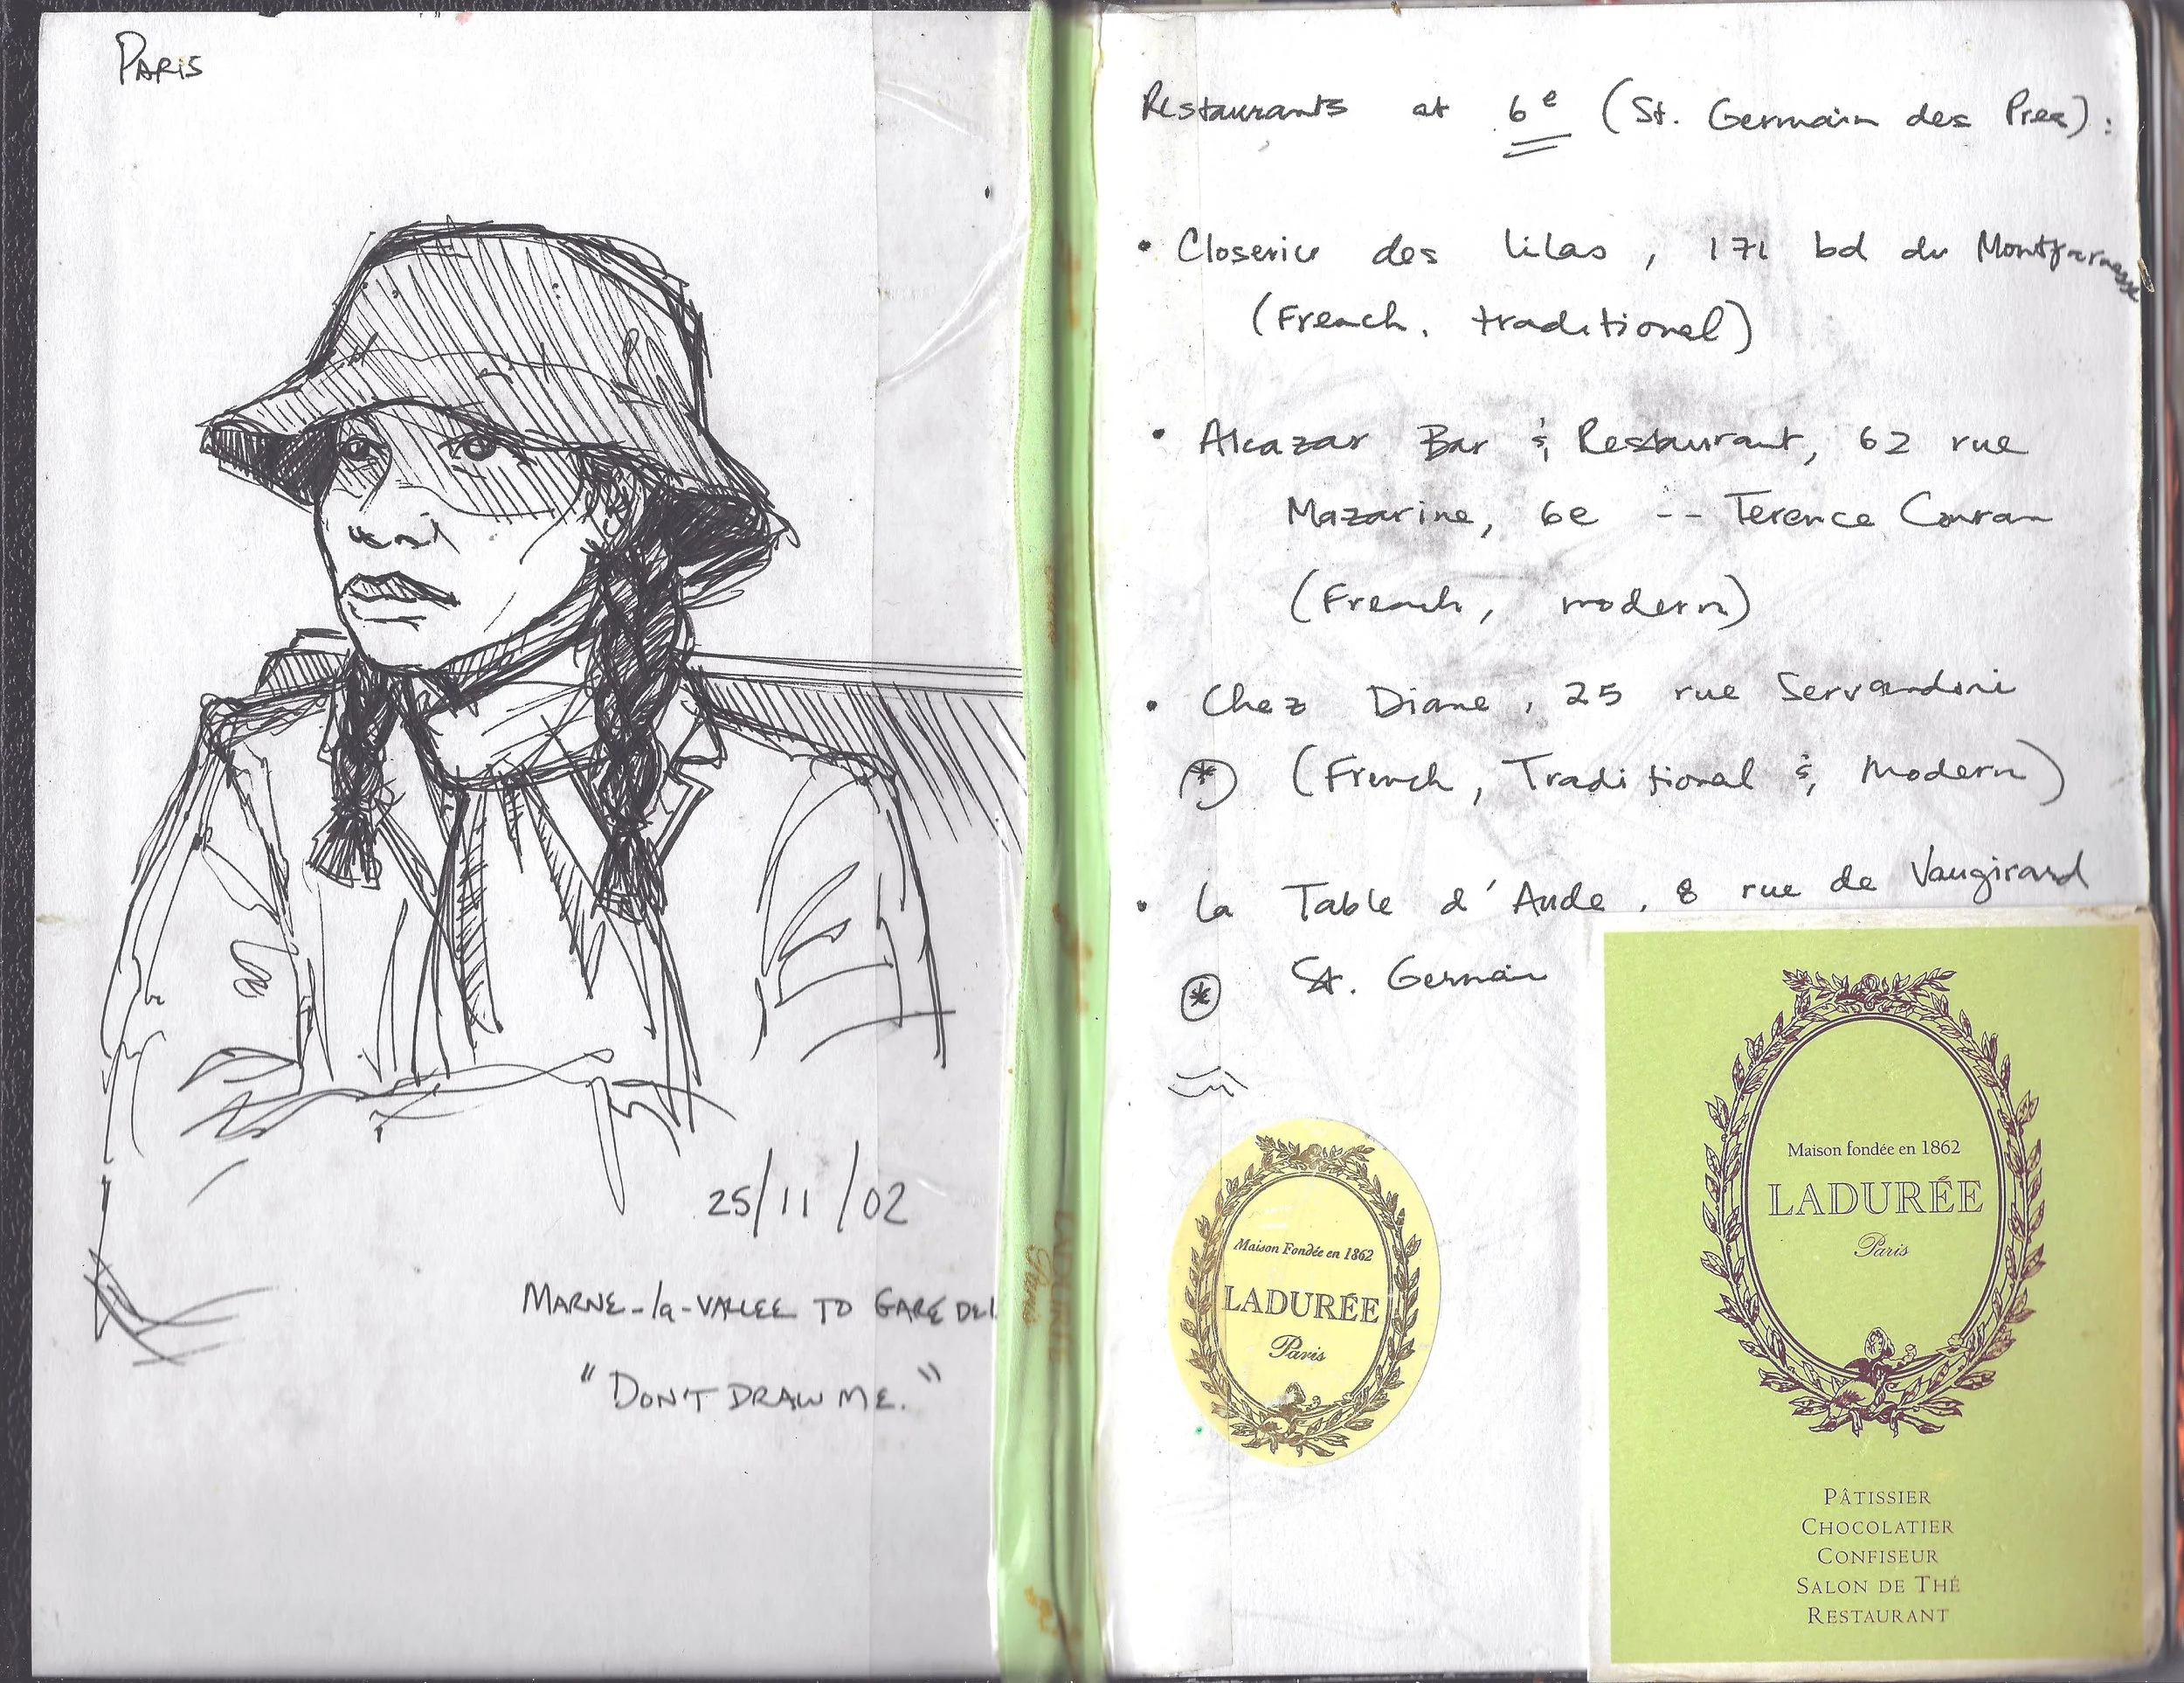 PARIS
25/11/02
MARNE-la-VALLEE TO GARE DE
"DON'T DRAW ME."
LADURÉE
Paris
Restaurants at 6e (St. Germain des Pres):
• Closerie des lilas, 171 bd du Montparnasse
(French, traditional)
• Alcazar Bar & Restaurant, 62 rue
Mazarine, 6e -- Terence Conran
(French, modern)
• Chez Diane, 25 rue Servandoni
* (French, Traditional & Modern)
• La Table d'Aude, 8 rue de Vaugirard
* St. Germain
Maison Fondée en 1862
LADURÉE
Paris
Maison fondée en 1862
LADURÉE
Paris
PÂTISSIER
CHOCOLATIER
CONFISEUR
SALON DE THÉ
RESTAURANT